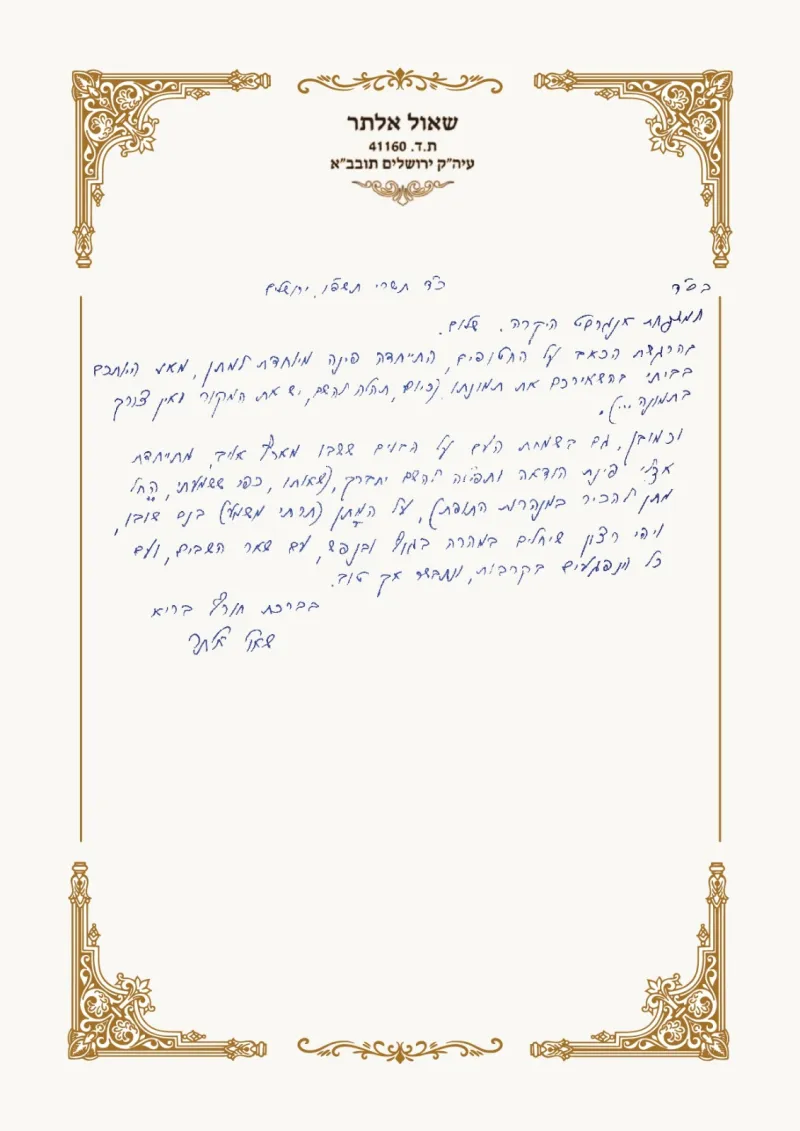 שאול אלתר
ת.ד. 41160
עיה"ק ירושלים תובב"א
בס"ד
כ"ד תשרי תשפ"ו, ירושלים
משפחת אנגרסט היקרה. שלום.
בהרגשת הכאב על החטופים, התייחדה פינה מיוחדת למתן, מאז היותכם
בביתי בהשאירכם את תמונתו (כיום, תהלה להשם, יש את המקור ואין צורך
בתמונה...).
וכמובן, גם בשמחת העם על הבנים ששבו מארץ אויב, מתייחדת
אצלי פינת הודאה ותפילה להשם יתברך, (שאותו, כפי ששמעתי, החל
מתן להכיר במנהרות התופת), על המתן (תרתי משמע) בנם שובו,
ויהי רצון שיחלים במהרה בגוף ובנפש, עם שאר השבים, ועם
כל הנפגעים בקרבות, ונתבשר אך טוב.
בברכת חורף בריא
שאול אלתר